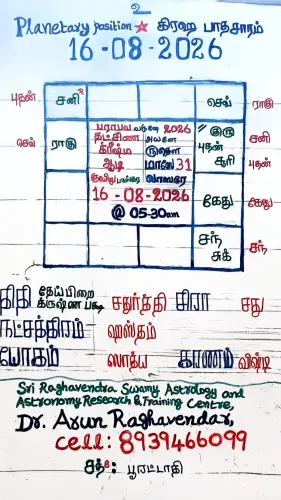 உ
Planetary position ☆ கிரஹ பாதசாரம்
16-08-2026
புதன் சனி செவ் ராகு
செவ் ராகு
பராபவ வருஷ 2026
தட்சிண அயனே
க்ரீஷ்ம ருதௌ
ஆடி மாஸே 31
வாஸரே
16-08-2026
@ 05-30am
குரு
புதன்
சூரி
சனி
புதன்
கேது கேது
சந்
சுக்
சந்
திதி தேய்பிறை
க்ருஷ்ண பக்ஷ சதுர்த்தி திரா சது
நட்சத்திரம் ஹஸ்தம்
யோகம் ஸாத்ய கரணம் விஷ்டி
Sri Raghavendra Swamy Astrology and
Astronomy Research & Training Centre,
Dr. Arun Raghavendar,
cell: 8939466099
சந்8: பூரட்டாதி